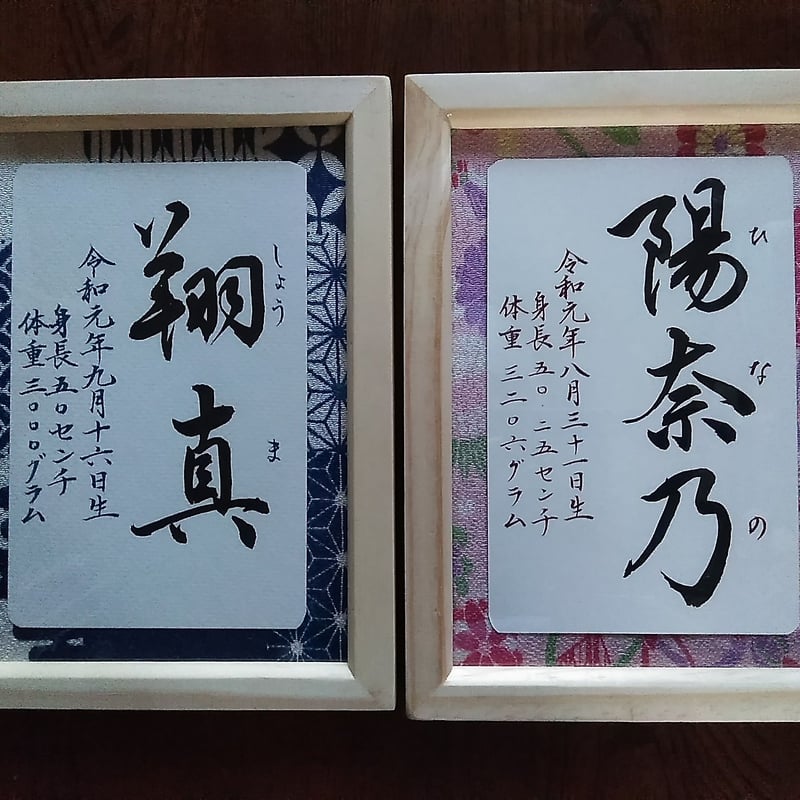 陽奈乃
ひなの
令和元年八月三十一日生
身長五〇.二五センチ
体重三二〇六グラム
翔真
しょうま
令和元年九月十六日生
身長五〇センチ
体重三〇〇〇グラム